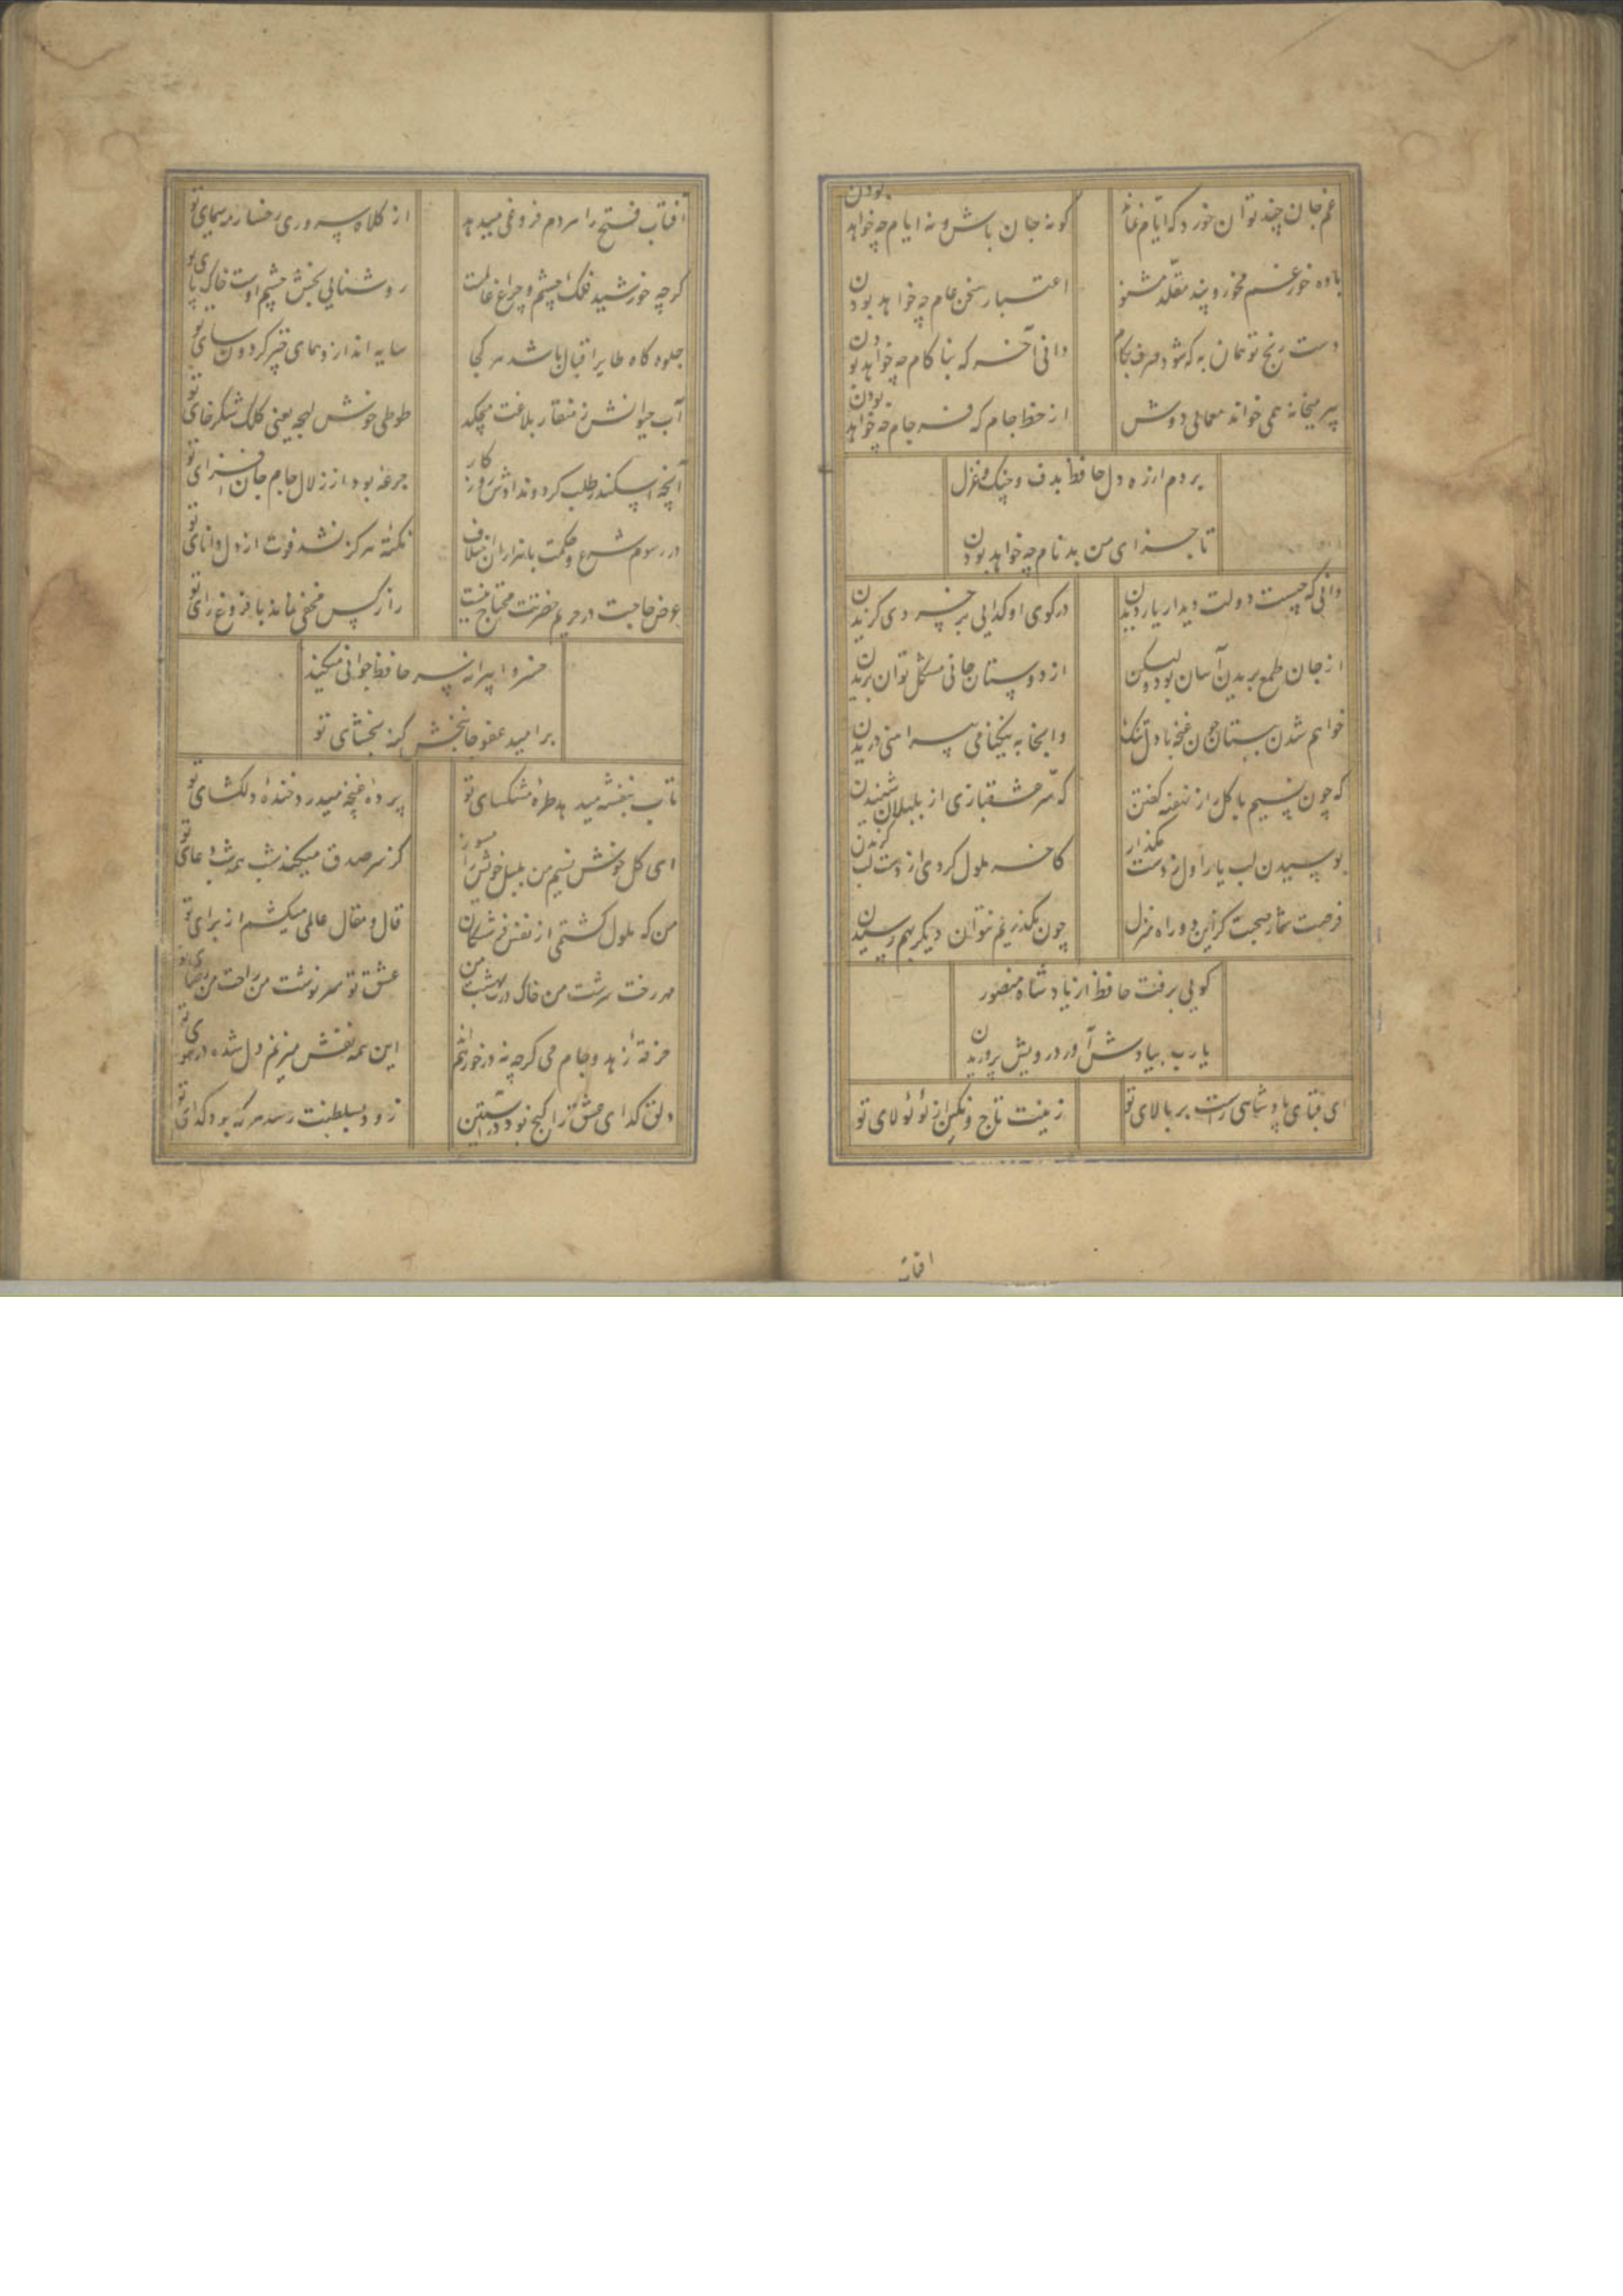 غم جان چند توان خورد که ایام نماند کو نه جان باش و نه ایام چه خواهد بودن
باده خور غم مخور و پند مقلد مشنو اعتبار سخن عام چه خواهد بودن
دست رنج تو همان به که شود صرف بکام دانی آخر که بناکام چه خواهد بودن
پیر میخانه همی خواند معمایی دوش از خط جام که فرجام چه خواهد بودن
بردم از ره دل حافظ بدف و چنگ و غزل
تا جزای من بدنام چه خواهد بودن
دانی که چیست دولت دیدار یار دیدن در کوی او گدایی بر خسروی گزیدن
از جان طمع بریدن آسان بود ولیکن از دوستان جانی مشکل توان بریدن
خواهم شدن ببستان چون غنچه با دل تنک وانجا به نیکنامی پیراهنی دریدن
که چون نسیم با کل راز نهفته کفتن که سر عشقبازی از بلبلان شنیدن
بوسیدن لب یار اول ز دست مکذار کاخر ملول کردی از دست لب کزیدن
فرصت شمار صحبت کز این دو راه منزل چون بکذریم نتوان دیکر بهم رسیدن
کویی برفت حافظ از یاد شاه منصور
یا رب بیادش آور درویش پروریدن
ای قبای پادشاهی راست بر بالای تو زینت تاج و نکین از لؤلؤ لالای تو
افتاب
آفتاب فتح را هر دم فروغی میدهد از کلاه سروری رخسار مه سیمای تو
کرچه خورشید فلک چشم و چراغ عالمست روشنایی بخش چشم اوست خاک پای تو
جلوه کاه طایر اقبال باشد هر کجا سایه اندازد همای چتر کردون سای تو
آب حیوانش ز منقار بلاغت میچکد طوطی خوش لهجه یعنی کلک شکرخای تو
آنچه اسکندر طلب کرد و ندادش روزکار جرعه بود از زلال جام جان افزای تو
در رسوم شرع و حکمت با هزاران اختلاف نکته هرکز نشد فوت از دل دانای تو
عرض حاجت در حریم حضرتت محتاج نیست راز کس مخفی نماند با فروغ رای تو
خسروا پیرانه سر حافظ جوانی میکند
بر امید عفو جانبخش کنه بخشای تو
تاب بنفشه میدهد طره مشکسای تو پرده غنچه میدرد خنده دلکشای تو
ای کل خوش نسیم من بلبل خویش را مسوز کز سر صدق میکند شب همه شب دعای تو
من که ملول کشتمی از نفس فرشتکان قال و مقال عالمی میکشم از برای تو
مهر رخت سرشت من خاک درت بهشت من عشق تو سرنوشت من راحت من رضای تو
خرقه زهد و جام می کرچه نه در خور همند این همه نقش میزنم دل شده در هوای تو
دلق کدای عشق را کنج بود در آستین زود بسلطنت رسد هر که بود کدای تو